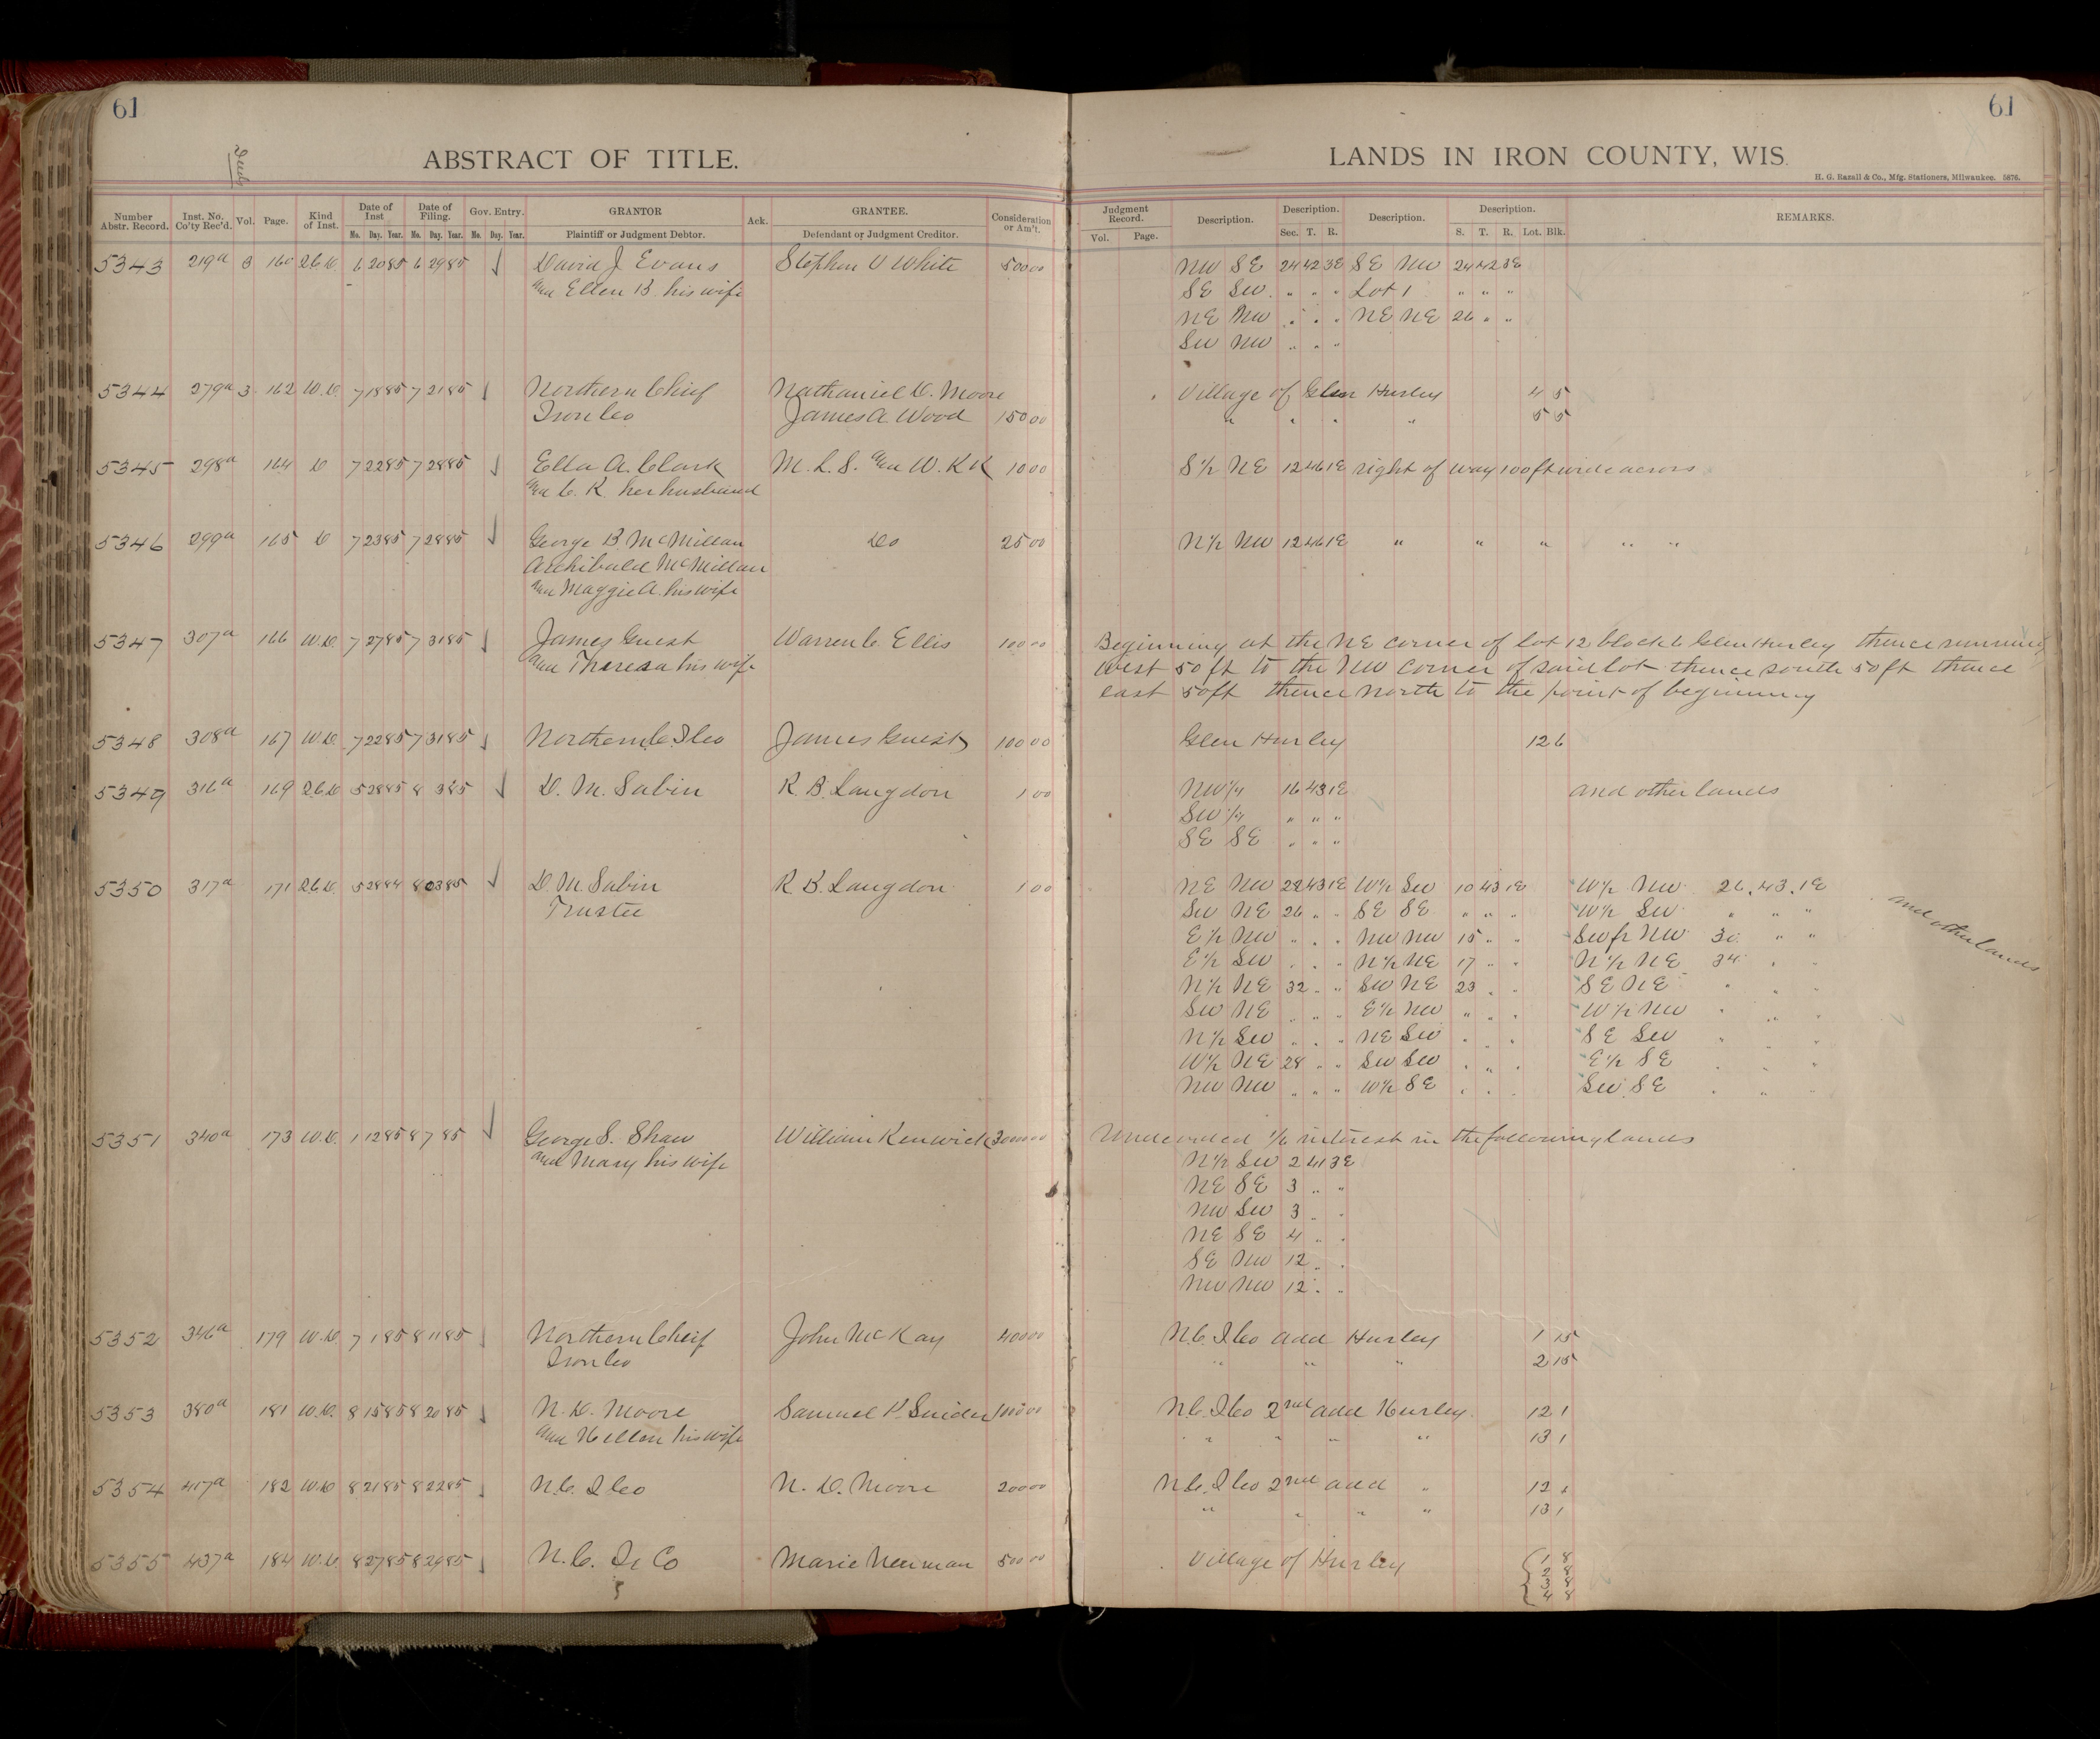 61
61
Deeds
ABSTRACT OF TITLE.
LANDS IN IRON COUNTY, WIS.
H. G. Razall & Co., Mfg. Stationers, Milwaukee. 5876.
Number Abstr. Record. Inst. No. Co'ty Rec'd. Vol. Page. Kind of Inst. Date of Inst Mo. Day. Year. Date of Filing. Mo. Day. Year. Gov. Entry. Mo. Day. Year. GRANTOR Plaintiff or Judgment Debtor. Ack. GRANTEE. Defendant or Judgment Creditor. Consideration or Am't. Judgment Record. Vol. Page. Description. Description. Sec. T. R. Description. Description. S. T. R. Lot. Blk. REMARKS.
5343 219a 3 160 2CD 6 20 85 6 29 85 David J Evans Stephen V White 500 00 NW SE 24 42 3E SE NW 24 42 3E
and Ellen B. his wife SE SW " " " Lot 1 " " "
NE NW " " " NE NE 26 " "
SW NW " " "
5344 279a 3 162 W.D. 7 18 85 7 21 85 Northern Chief Nathaniel D. Moore Village of Glen Hurley 4 5
Iron Co James A. Wood 150 00 " " " " 5 5
5345 298a 164 D 7 22 85 7 28 85 Ella A. Clark M. L. S. and W. RR 10 00 S 1/2 NE 12 46 1E right of way 100 ft wide across
and C. K. her husband
5346 299a 165 D 7 23 85 7 28 85 George B. McMillan Do 25 00 N 1/2 NW 12 46 1E " " " " "
Archibald McMillan
and Maggie A. his wife
5347 307a 166 W.D 7 27 85 7 31 85 James Guest Warren C Ellis 100 00 Beginning at the NE corner of lot 12 block 6 Glen Hurley thence running
and Theresa his wife west 50 ft to the NW corner of said lot thence south 50 ft thence
east 50 ft thence north to the point of beginning
5348 308a 167 W.D. 7 22 85 7 31 85 Northern C. I Co James Guest 100 00 Glen Hurley 12 6
5349 316a 169 2CD 5 28 85 8 3 85 D. M. Sabin R. B. Langdon 1 00 NW 1/4 16 43 1E and other lands
SW 1/4 " " "
SE SE " " "
5350 317a 171 2CD 5 28 84 8 03 85 D. M. Sabin R B. Langdon 1 00 NE NW 22 43 1E W 1/2 SW 10 43 1E W 1/2 NW 26. 43. 1E
Trustee SW NE 26 " " SE SE " " " W 1/2 SW " " " and other lands
E 1/2 NW " " " NW NW 15 " " SW fr NW 30 " "
E 1/2 SW " " " N 1/2 NE 17 " " N 1/2 NE 34 " "
N 1/2 NE 32 " " SW NE 23 " " SE NE " " "
SW NE " " " E 1/2 NW " " " W 1/2 NW " " "
N 1/2 SW " " " NE SW " " " SE SW " " "
W 1/2 NE 28 " " SW SW " " " E 1/2 SE " " "
NW NW " " " W 1/2 SE " " " SW SE " " "
5351 340a 173 W.D. 1 12 85 8 7 85 George S. Shaw William Kenwick 3000 00 Undivided 1/6 interest in the following lands
and Mary his wife N 1/2 SW 2 41 3E
NE SE 3 " "
NW SW 3 " "
NE SE 4 " "
SE NW 12 " "
NW NW 12 " "
5352 346a 179 W.D 7 1 85 8 11 85 Northern Chief John McKay 400 00 N.C. I Co add Hurley 1 15
Iron Co " " " 2 15
5353 380a 181 W.D. 8 15 85 8 20 85 N. D. Moore Samuel P Snider 1000 00 N.C. I Co 2nd add Hurley. 12 1
and Hellen his wife " " " " 13 1
5354 417a 182 W.D 8 21 85 8 22 85 N.C. I Co N. D. Moore 200 00 N.C. I Co 2nd add " 12 1
" " " " 13 1
5355 437a 184 W.D 8 27 85 8 29 85 N. C. I. Co Marie Neuman 500 00 Village of Hurley 1 8
2 8
3 8
4 8